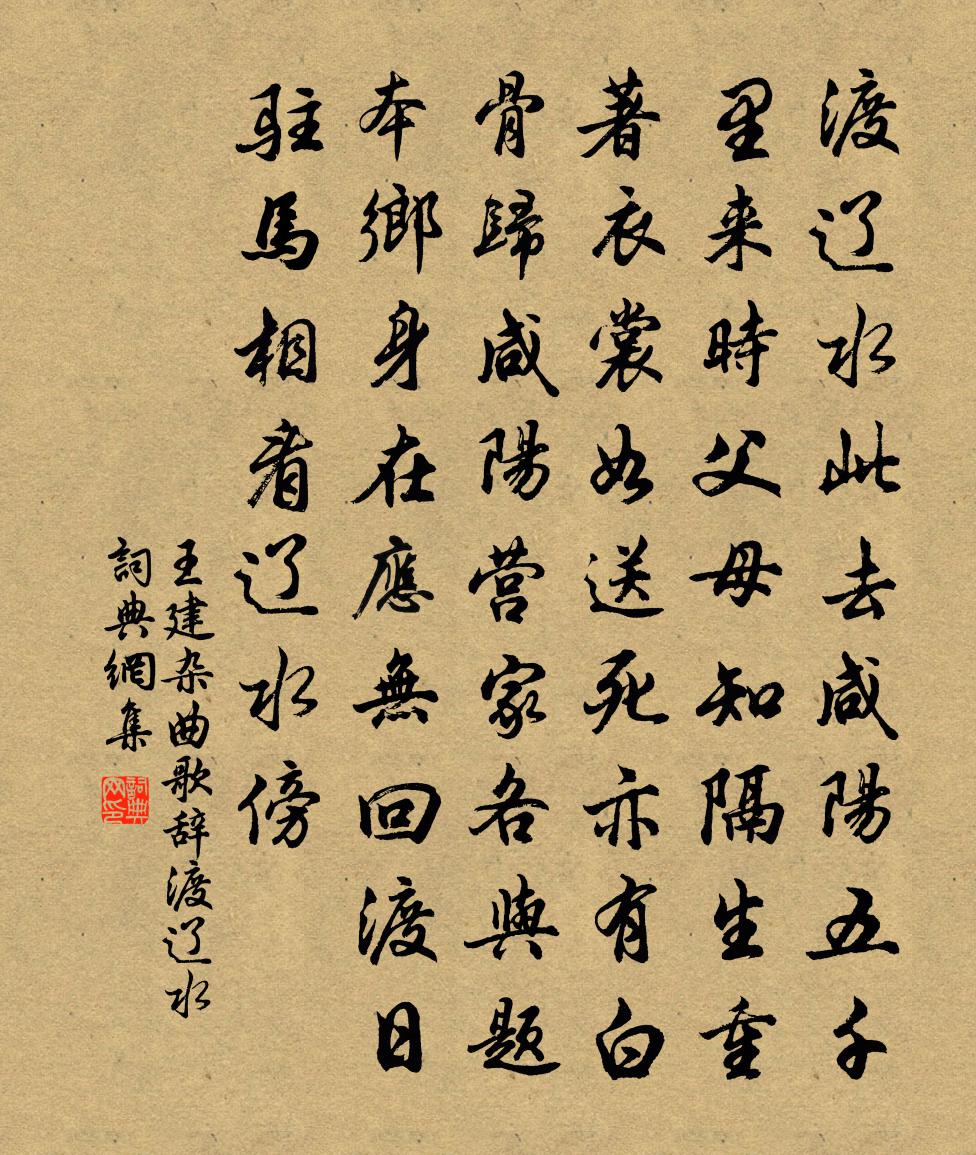 渡辽水此去咸陽五千
里来時父母知隔生重
著衣裳如送死亦有白
骨歸咸陽营家各與题
本鄉身在應無回渡日
駐馬相看辽水傍
王建杂曲歌辞渡辽水
詞典網集
詞典
网印